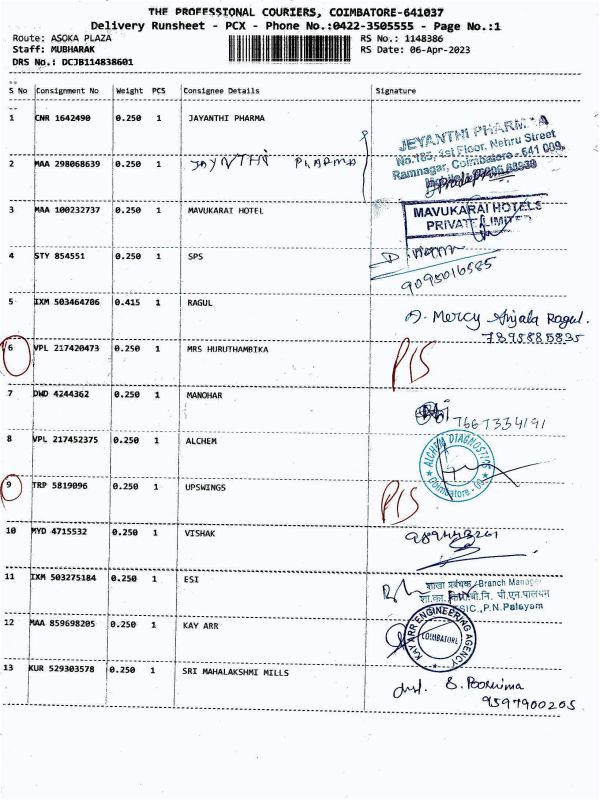 THE PROFESSIONAL COURIERS, COIMBATORE-641037
Delivery Runsheet - PCX - Phone No.:0422-3505555 - Page No.:1
Route: ASOKA PLAZA RS No.: 1148386
Staff: MUBHARAK RS Date: 06-Apr-2023
DRS No.: DCJB114838601
S No Consignment No Weight PCS Consignee Details Signature
1 CNR 1642490 0.250 1 JAYANTHI PHARMA
JEYANTHI PHARMA
No.185, 1st Floor, Nehru Street
Ramnagar, Coimbatore - 641 009,
2 MAA 298068639 0.250 1 JAYNTHI PHARMA
3 MAA 100232737 0.250 1 MAVUKARAI HOTEL
MAVUKARAI HOTELS
PRIVATE LIMITED
4 STY 854551 0.250 1 SPS
9095016585
5 IXM 503464706 0.415 1 RAGUL
A. Mercy Anjala Ragul.
7395885835
6 VPL 217420473 0.250 1 MRS HURUTHAMBIKA
7 DWD 4244362 0.250 1 MANOHAR
7667334191
8 VPL 217452375 0.250 1 ALCHEM
ALCHEM DIAGNOSTICS
Coimbatore - 09
9 TRP 5819096 0.250 1 UPSWINGS
10 MYD 4715532 0.250 1 VISHAK
11 IXM 503275184 0.250 1 ESI
शाखा प्रबंधक /Branch Manager
ESIC.,P.N.Palayam
12 MAA 859698205 0.250 1 KAY ARR
KAY ARR ENGINEERING AGENCY
COIMBATORE
13 KUR 529303578 0.250 1 SRI MAHALAKSHMI MILLS
S. Poornima
9597900205